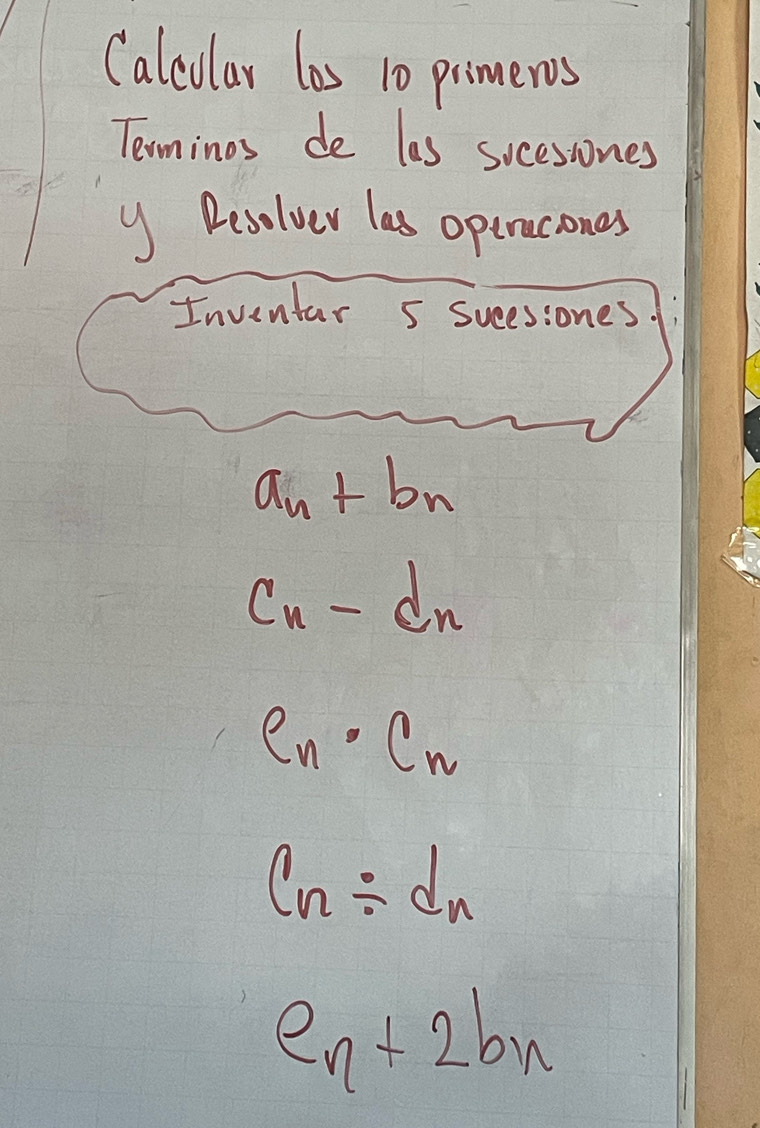 Calcular los 10 primeros
Terminos de las sucesiones
y Resolver las operaciones
Inventar 5 sucesiones.
an + bn
cn - dn
en · cn
cn ÷ dn
en + 2bn